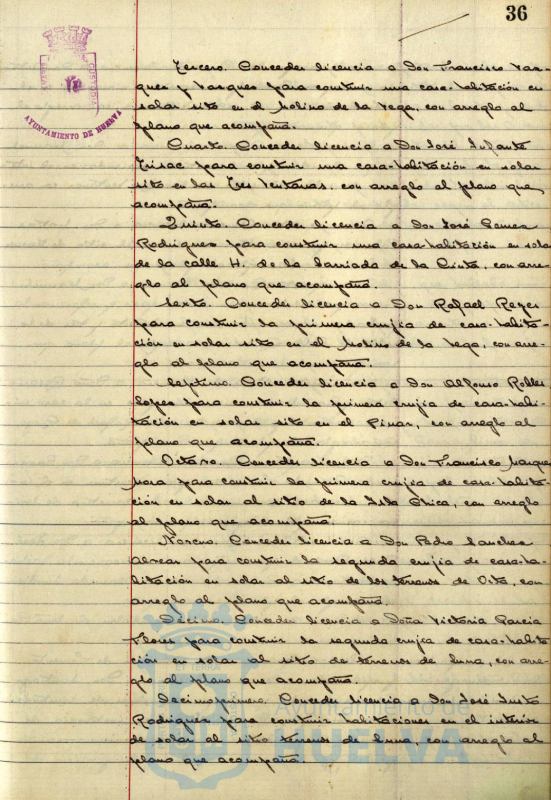 36
AYUNTAMIENTO DE HUELVA
Tercero. Conceder licencia a Don Francisco Vaz-
quez y Vazquez para construir una casa-habitación en
solar sito en el Molino de la Vega, con arreglo al
plano que acompaña.
Cuarto. Conceder licencia a Don José Infante
para construir una casa-habitación en solar
sito en las Tres Ventanas, con arreglo al plano que
acompaña.
Quinto. Conceder licencia a Don José Gomez
Rodriguez para construir una casa-habitación en solar
de la calle H. de la Barriada de la Cinta, con arre-
glo al plano que acompaña.
Sexto. Conceder licencia a Don Rafael Reyes
para construir la primera crujia de casa-habita-
ción en solar sito en el Molino de la Vega, con arre-
glo al plano que acompaña.
Septimo. Conceder licencia a Don Alfonso Robles
Lopez para construir la primera crujia de casa-habi-
tación en solar sito en el Pinar, con arreglo al
plano que acompaña.
Octavo. Conceder licencia a Don Francisco Marquez
Mora para construir la primera crujia de casa-habita-
ción en solar al sitio de la Isla Chica, con arreglo
al plano que acompaña.
Noveno. Conceder licencia a Don Pedro Sanchez
para construir la segunda crujia de casa-ha-
bitación en solar al sitio de los terrenos de Orta, con
arreglo al plano que acompaña.
Décimo. Conceder licencia a Doña Victoria Garcia
Flores para construir la segunda crujia de casa-habita-
ción en solar al sitio de terrenos de Luna, con arre-
glo al plano que acompaña.
Decimoprimero. Conceder licencia a Don José Justo
Rodriguez para construir habitaciones en el interior
de solar al sitio terrenos de Luna, con arreglo al
plano que acompaña.
Ayuntamiento de
HUELVA